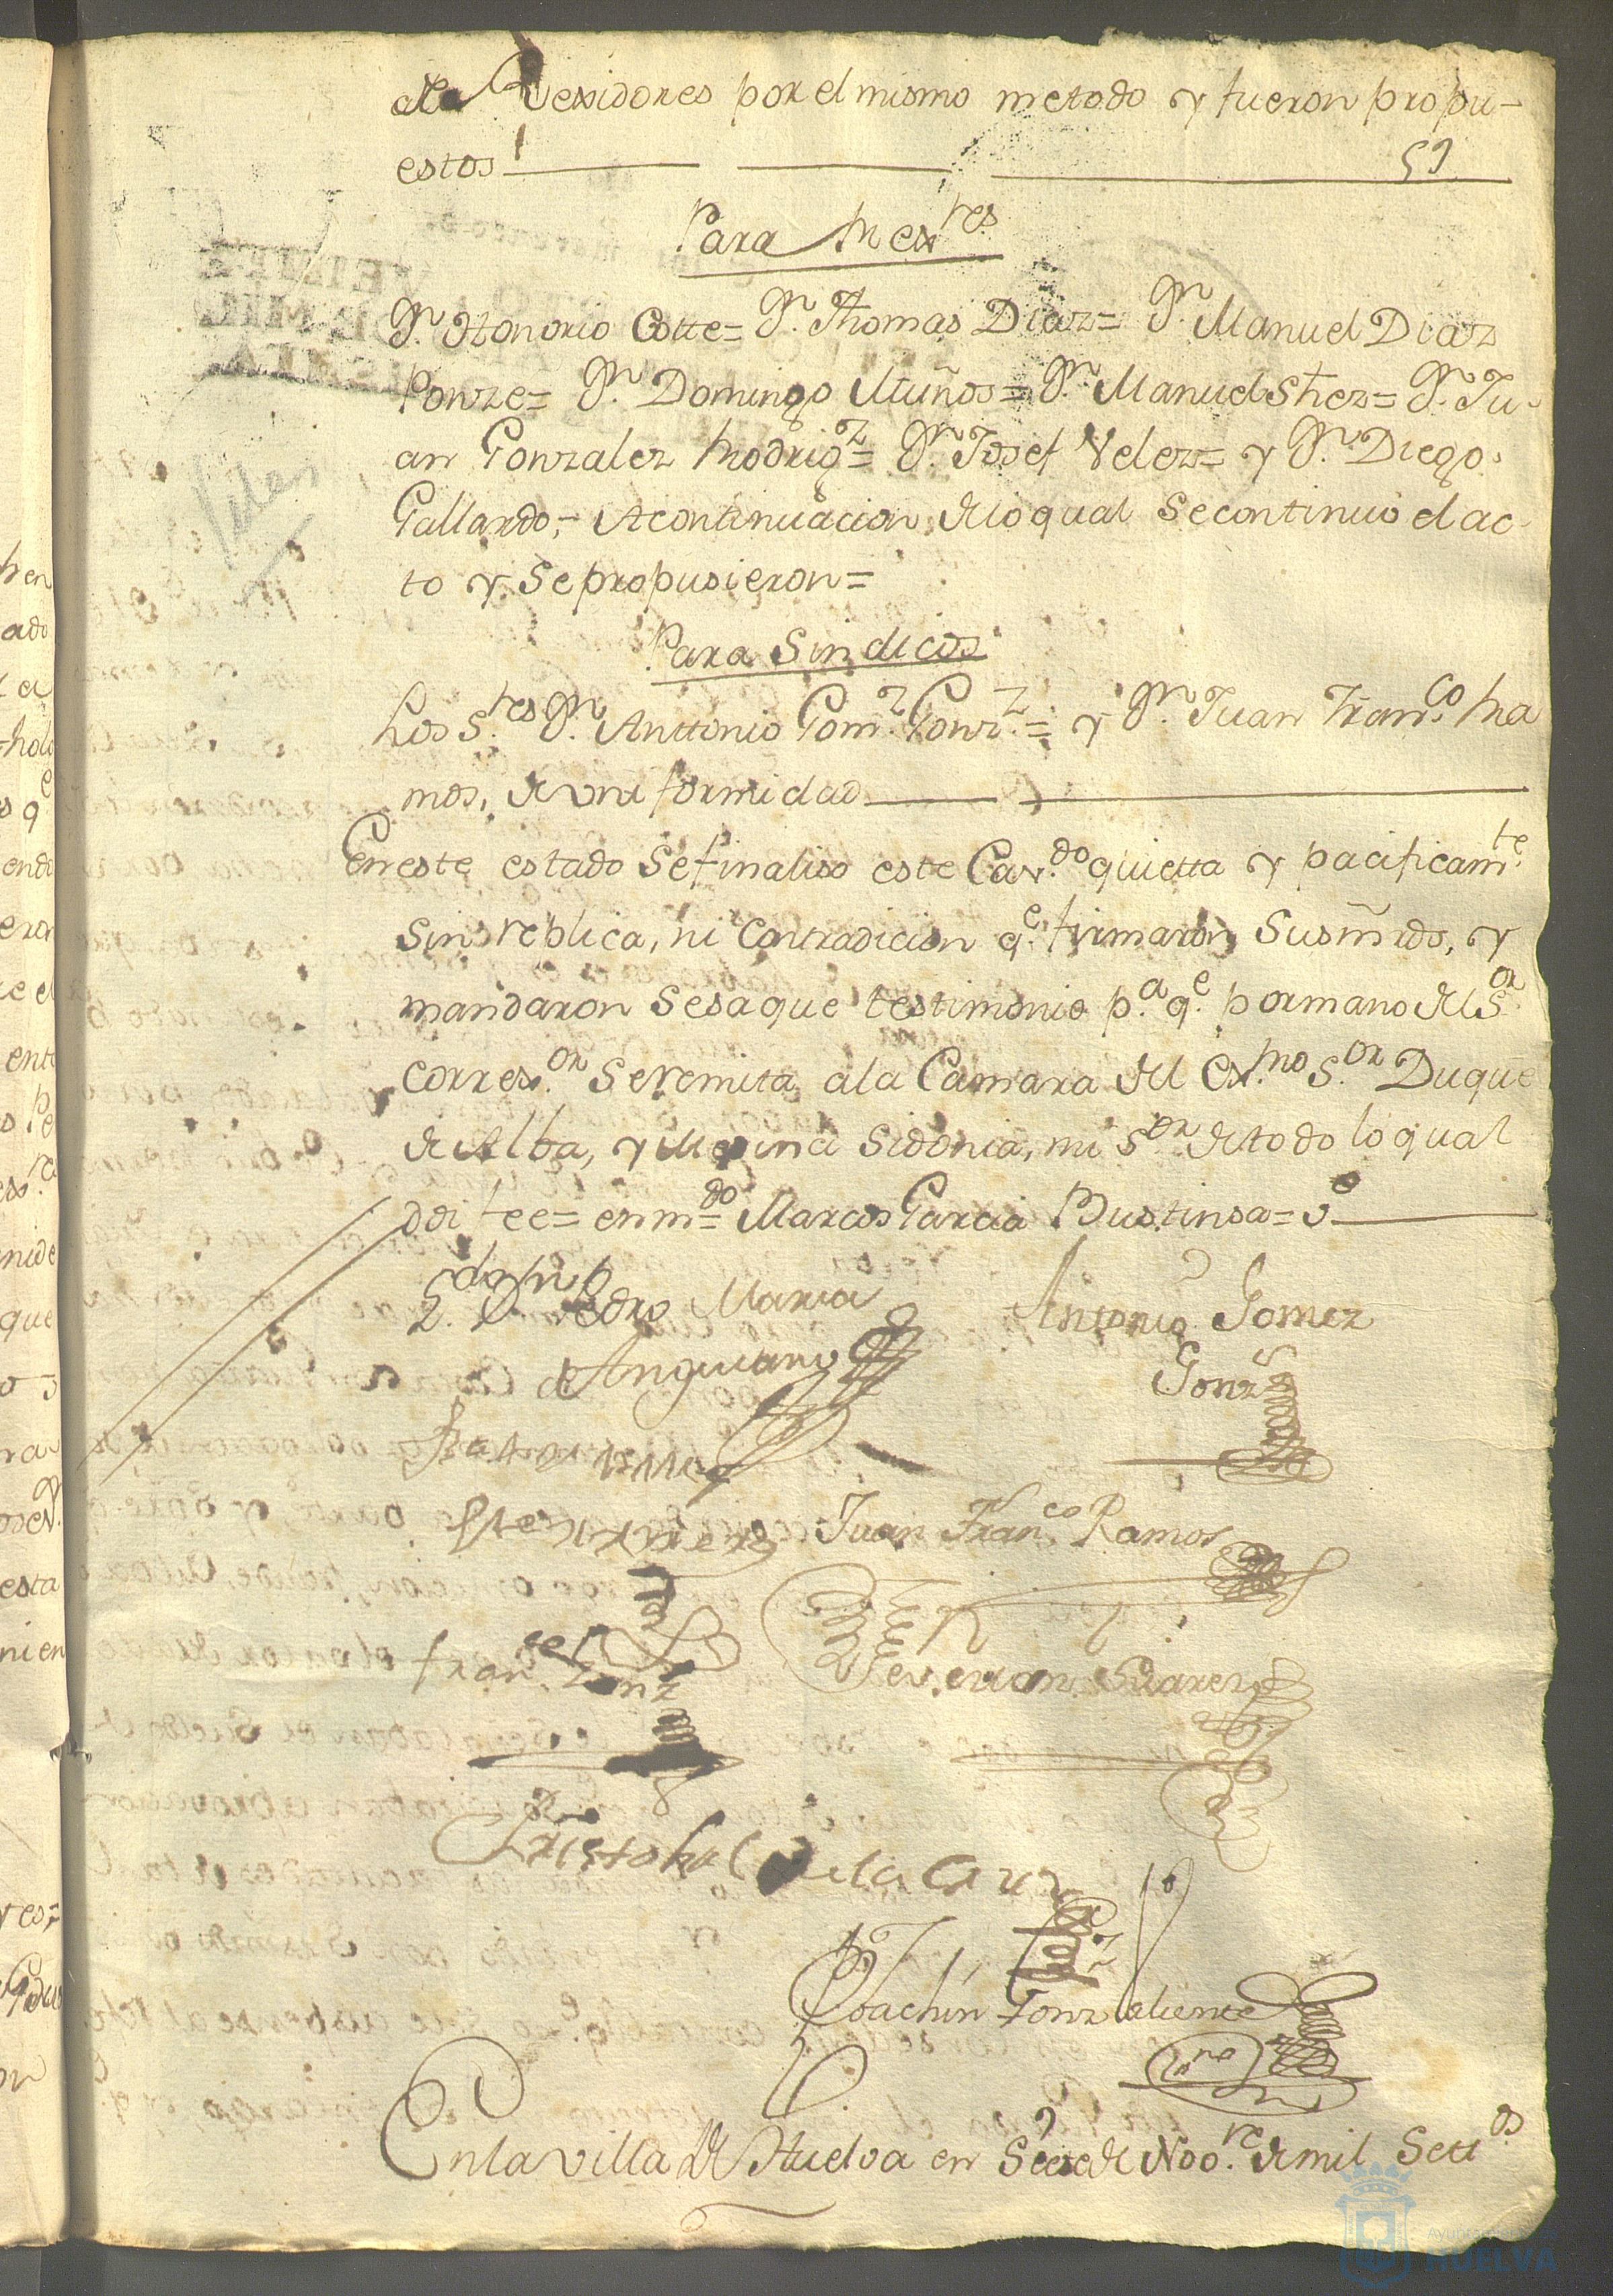 de Rexidores por el mismo metodo y fueron propu-
estos
51
Para Rex.res
Dn. Honorio Cotte= Dn. Thomas Diaz= Dn. Manuel Diaz
Ponze= Dn. Domingo Muños= Dn. Manuel Shez= Dn. Ju-
an Gonzalez Rodrigz= Dn. Josef Velez= y Dn. Diego
Gallardo,- A continuacion de lo qual se continuó el ac-
to y se propusieron=
Para Sindicos
Los S.res Dn. Anttonio Gomz. Gonz.= y Dn. Juan Fran.co Ra
mos, de uniformidad
En este estado se finaliso este Cav.do quietta y pacificam.te
sin replica, ni contradicion q.e firmaron Susmrds, y
mandaron se saque testimonio p.a q.e por mano del S.or
Correx.or se remita a la Camara del Ex.mo S.or Duque
de Alba, y Medina Sidonia, mi S.or de todo lo qual
doi fee= enm.do= Marcos Garcia Bustinsa= v.e
L.do Dn. Pedro Maria
de Anguiano
Antonio Gomez
Gonz
Juan Fran.co Ramos
Fran.co Gonz
Severian Suarez
Cristobal de la Cruz
Joachin Gonz
En la villa de Huelva en Siete de Nov.re de mil Sett.os
Ayuntamiento de
HUELVA